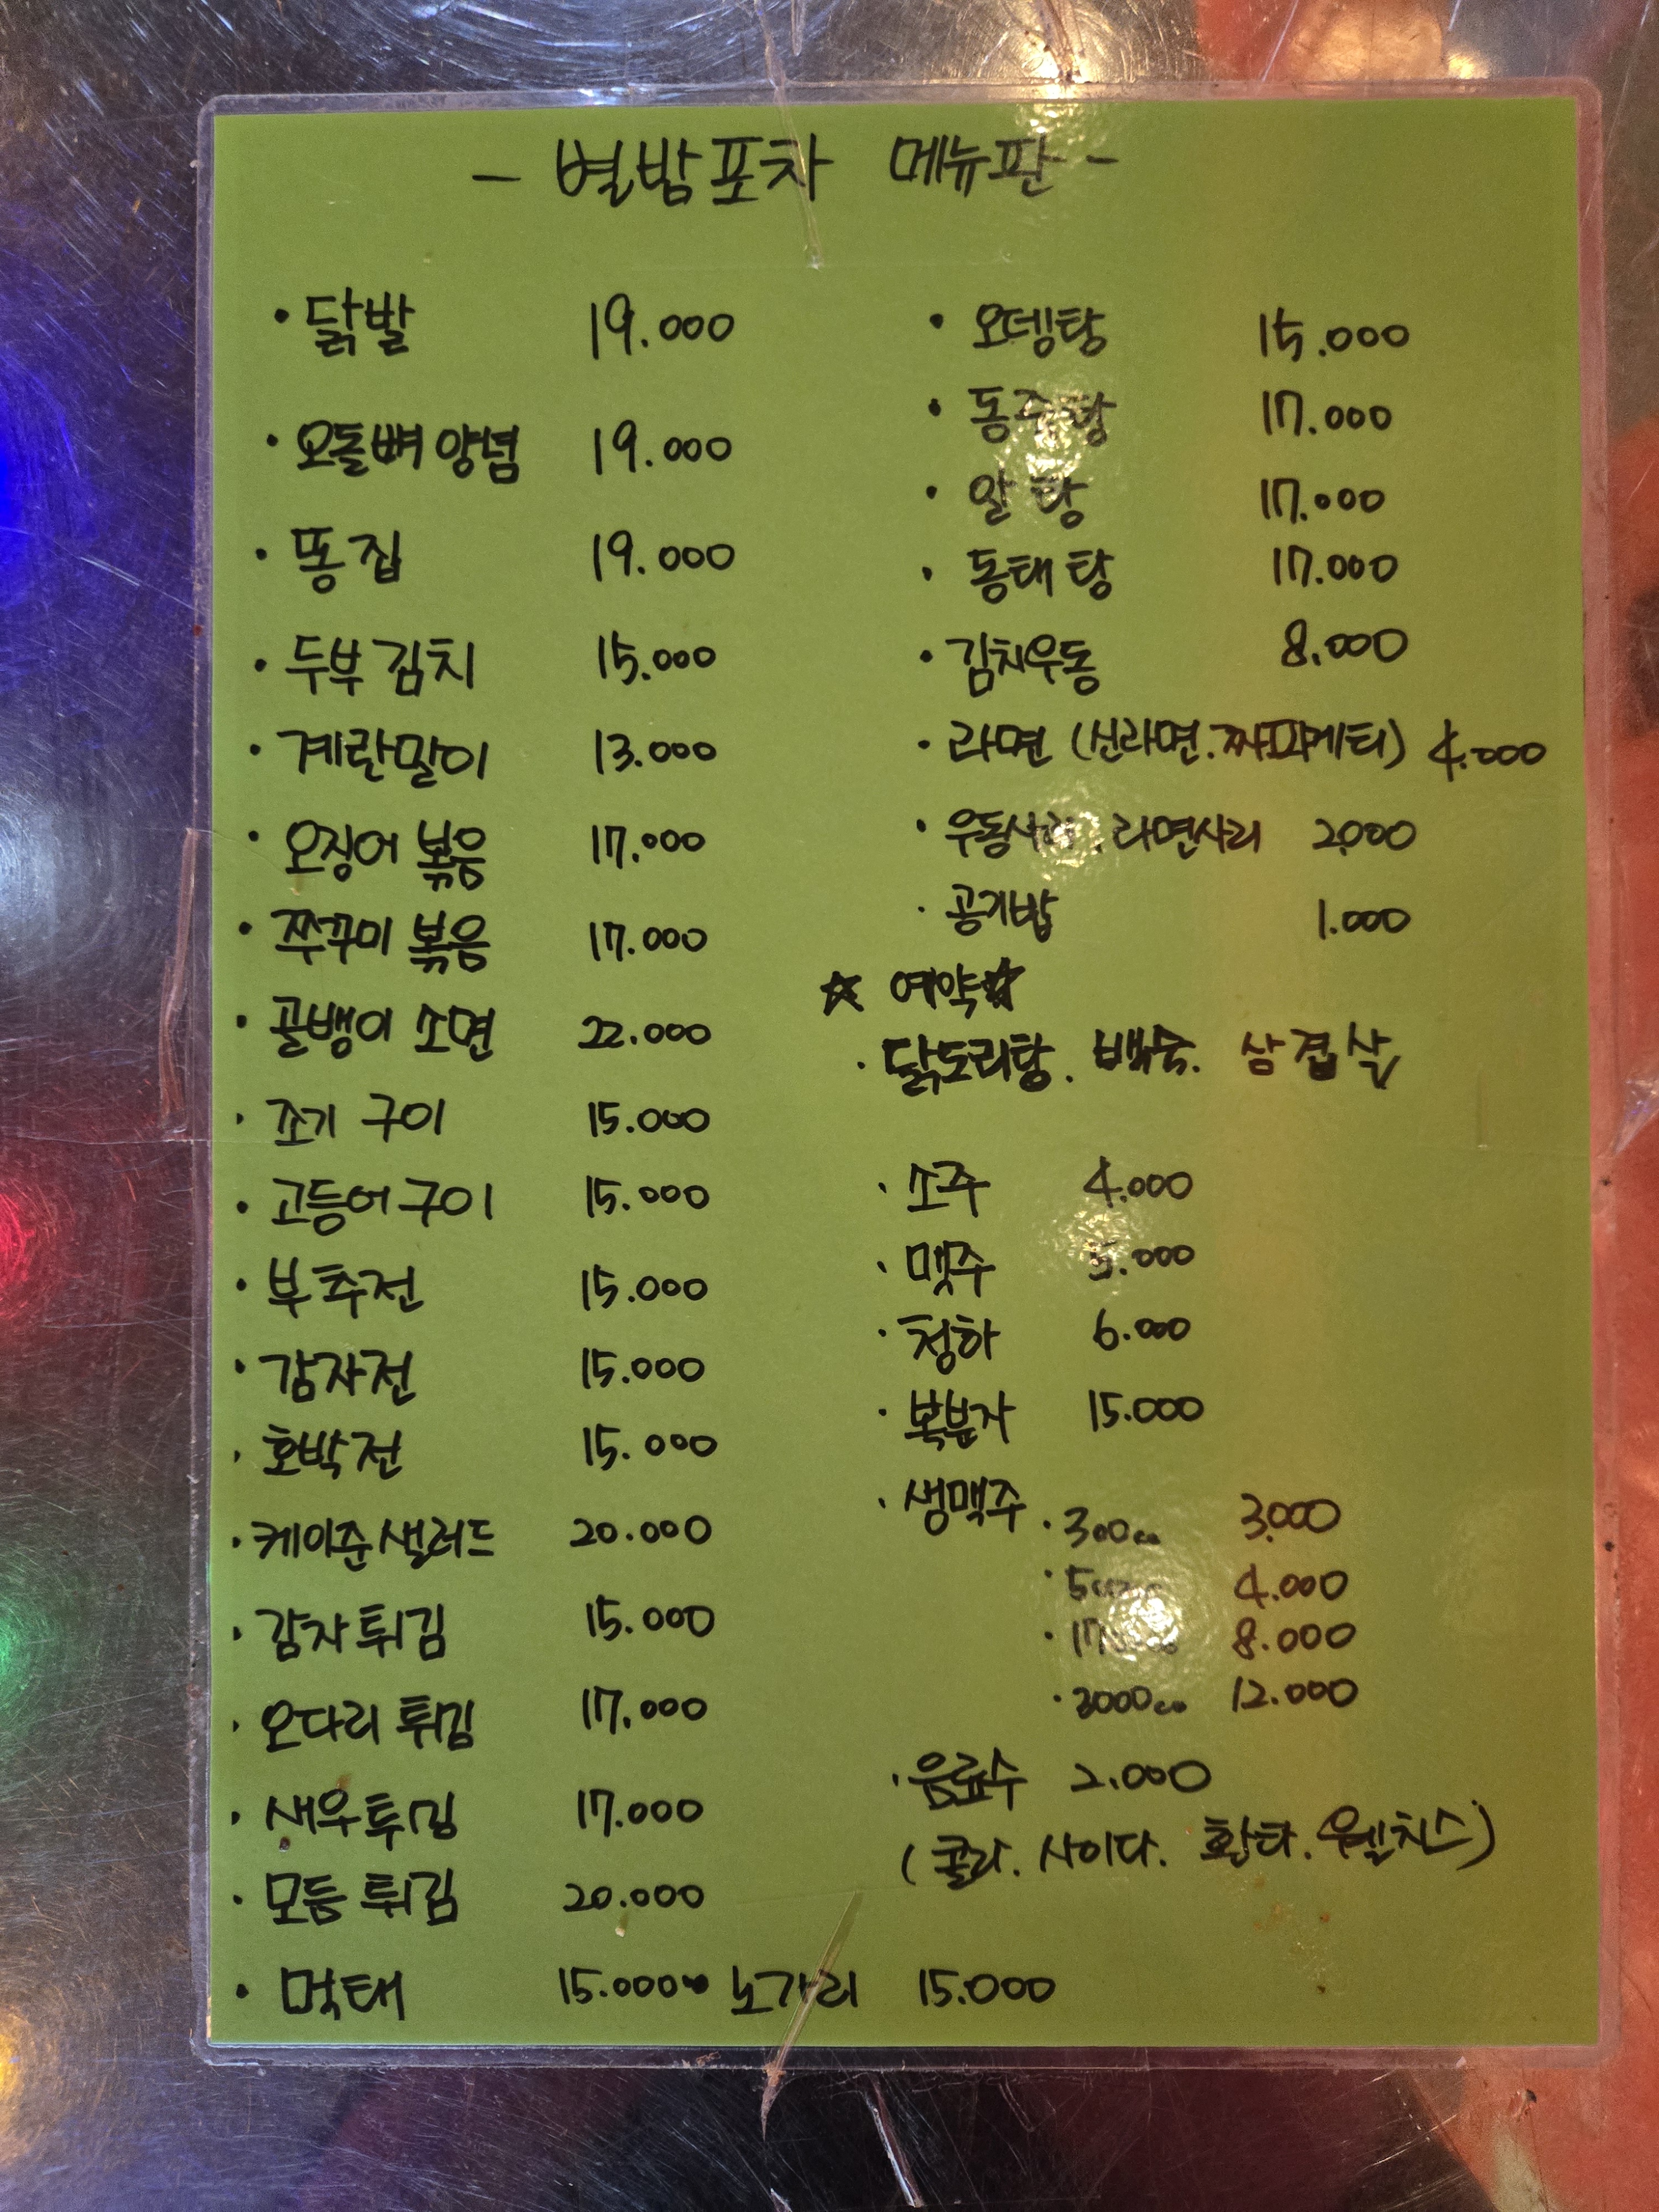 - 별밤포차 메뉴판 -
· 닭발 19.000
· 오돌뼈 양념 19.000
· 똥집 19.000
· 두부김치 15.000
· 계란말이 13.000
· 오징어 볶음 17.000
· 쭈꾸미 볶음 17.000
· 골뱅이 소면 22.000
· 조기 구이 15.000
· 고등어구이 15.000
· 부추전 15.000
· 감자전 15.000
· 호박전 15.000
· 케이준샐러드 20.000
· 감자튀김 15.000
· 오다리 튀김 17.000
· 새우튀김 17.000
· 모듬튀김 20.000
· 먹태 15.000 노가리 15.000
· 오뎅탕 15.000
· 17.000
· 알탕 17.000
· 동태탕 17.000
· 김치우동 8.000
· 라면 (신라면.짜파게티) 4.000
· 우동사리.라면사리 2.000
· 공기밥 1.000
☆ 예약☆
· 닭도리탕. 백숙. 삼겹살
· 소주 4.000
· 맥주 5.000
· 청하 6.000
· 복분자 15.000
· 생맥주 · 300cc 3.000
4.000
8.000
· 3000cc 12.000
· 음료수 2.000
(콜라. 사이다. 환타. 웰치스)